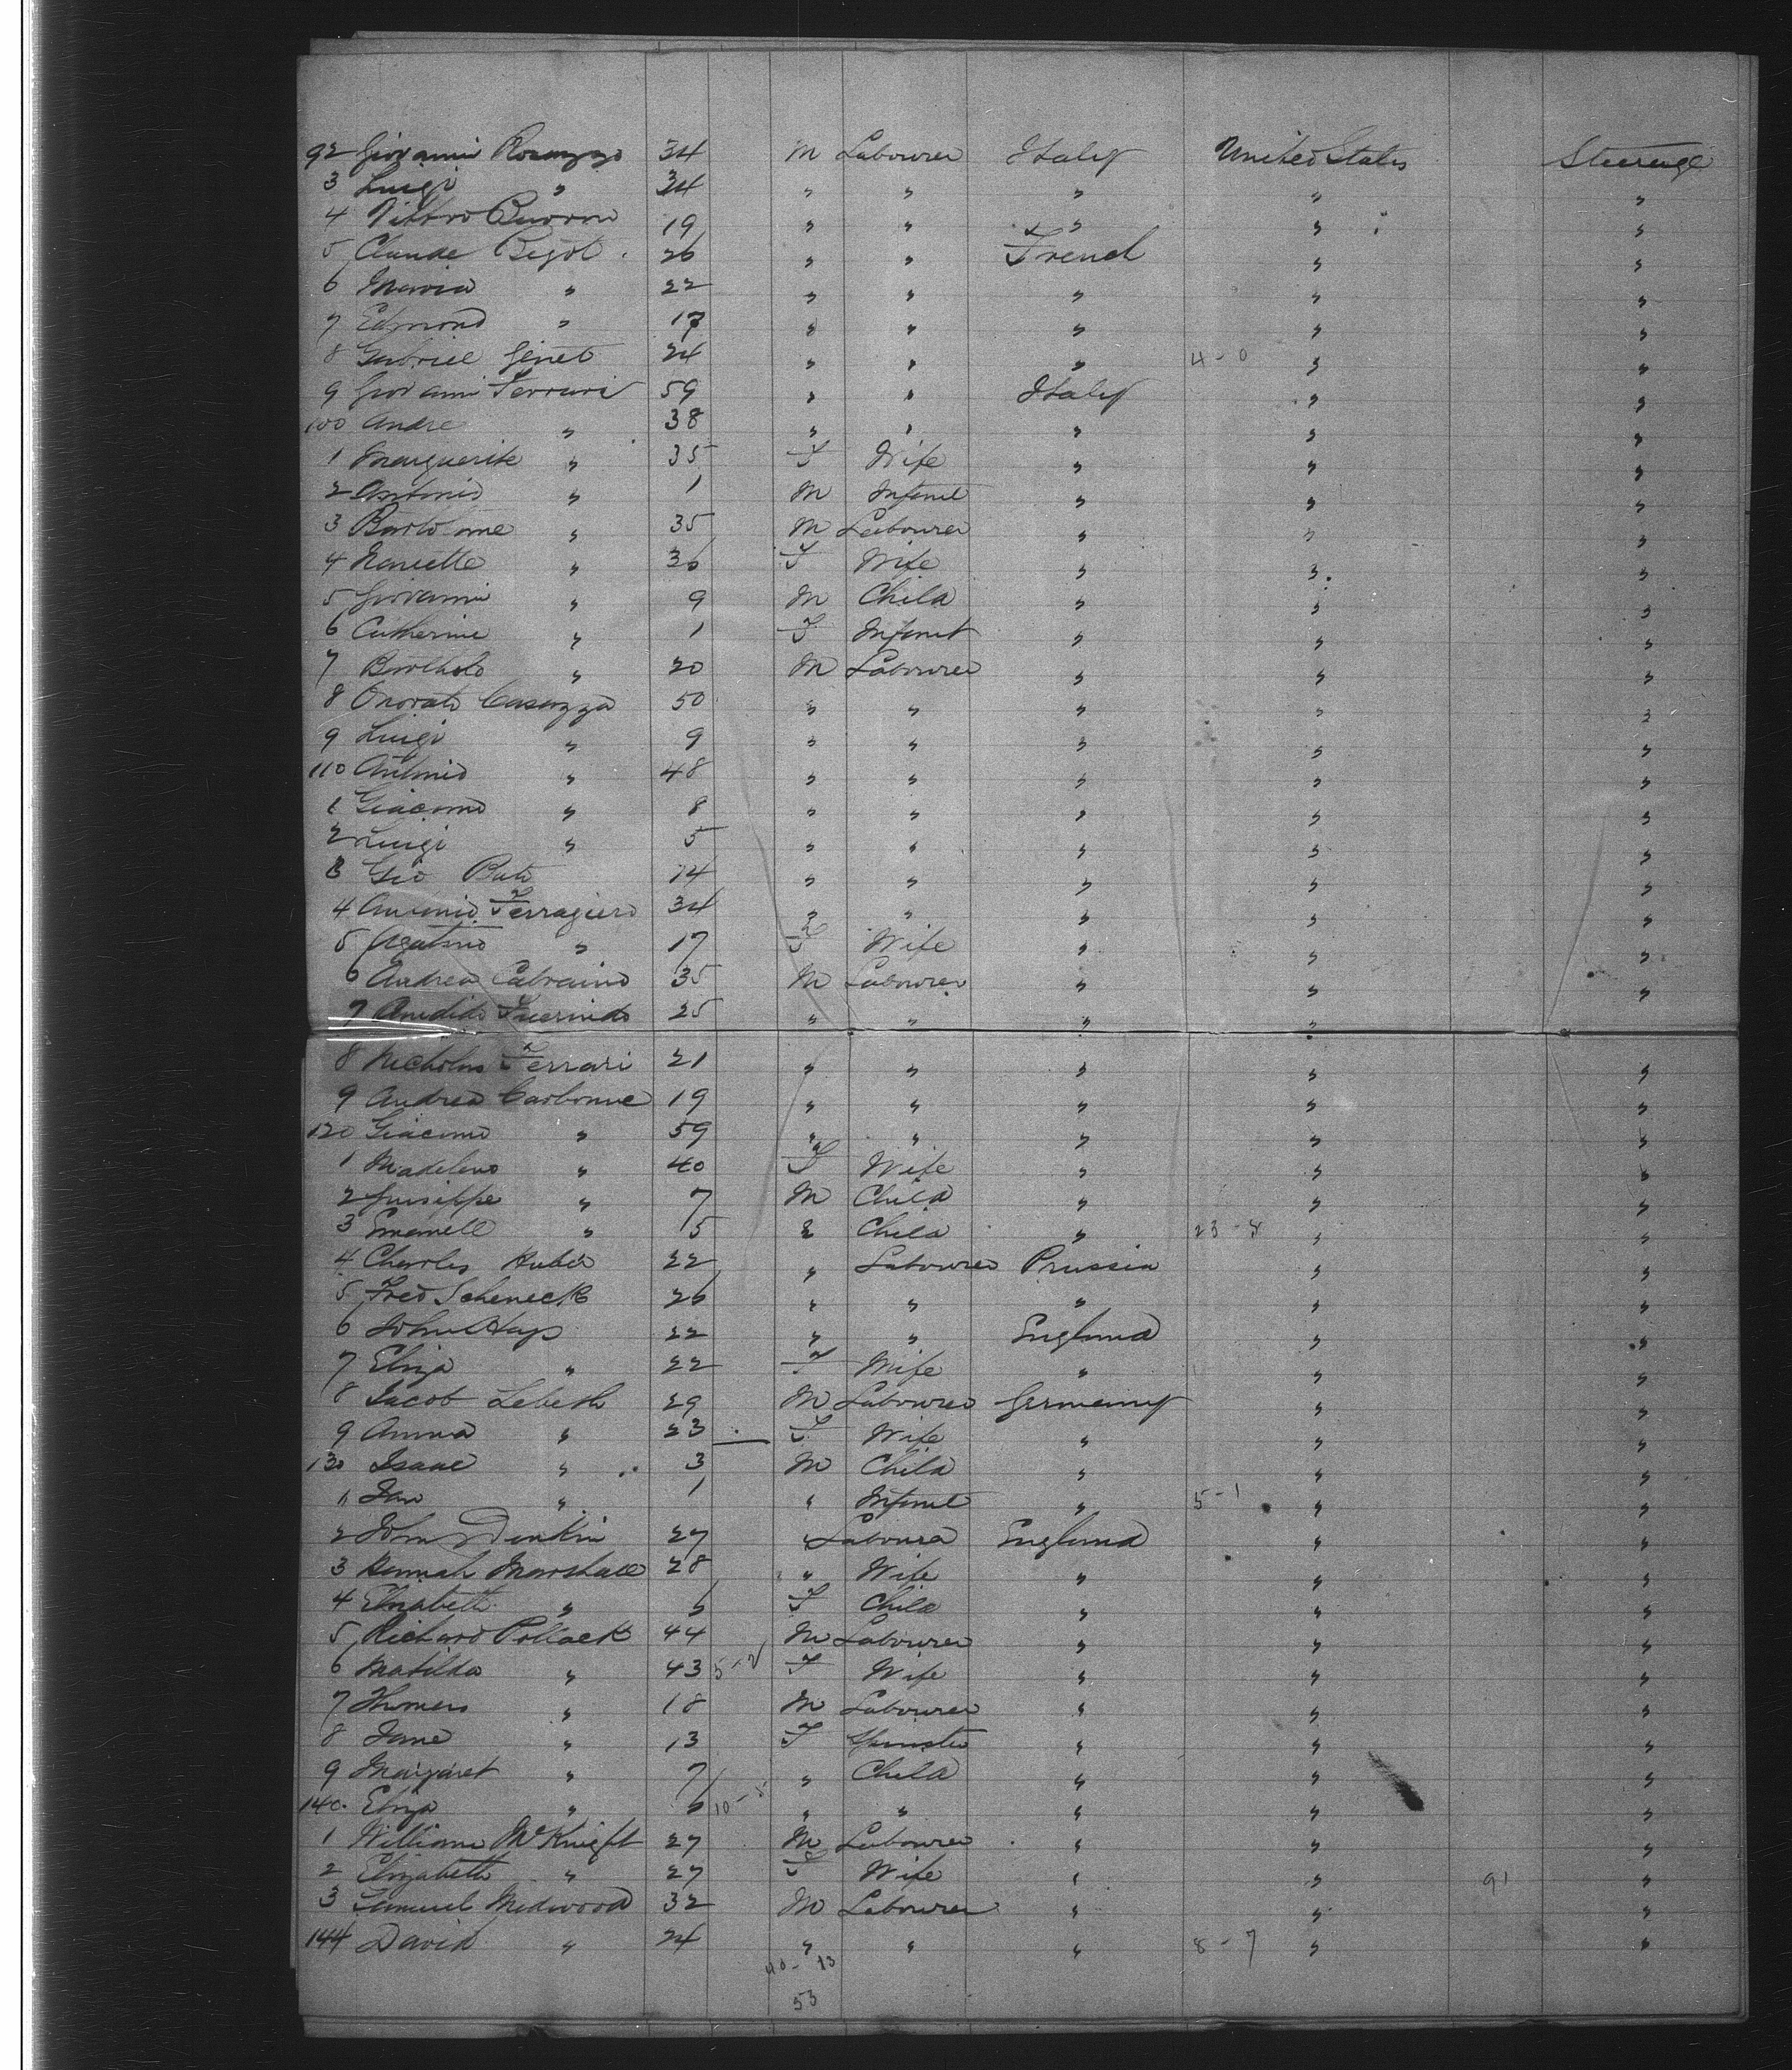 92 Giovanni Rosazza 34 M Labourer Italy United States Steerage
3 Luigi " 34 " " " " "
4 19 " " " " "
5 Claude Bigot 26 " " French " "
6 Maria " 22 " " " " "
7 Edmond " 17 " " " " "
8 Gabriel Genet 24 " " " 4-0 " "
9 Giovanni Ferrari 59 " " Italy " "
100 Andre " 38 " " " " "
1 Marguerite " 35 F Wife " " "
2 Antonio " 1 M Infant " " "
3 Bartolome " 35 M Labourer " " "
4 Nanette " 36 F Wife " " "
5 Giovanni " 9 M Child " " "
6 Catherine " 1 F Infant " " "
7 Bartholo " 20 M Labourer " " "
8 Onorato Casazza 50 " " " " "
9 Luigi " 9 " " " " "
110 Antonio " 48 " " " " "
1 Giacomo " 8 " " " " "
2 Luigi " 5 " " " " "
3 Gio Bato 14 " " " " "
4 Antonio Ferragiero 34 " " " " "
5 Agatino " 17 F Wife " " "
6 Andrea Cabraino 35 M Labourer " " "
7 25 " " " " "
8 Nicholas Ferrari 21 " " " " "
9 Andrea Carbonne 19 " " " " "
120 Giacomo " 59 " " " " "
1 Madeleno " 40 F Wife " " "
2 Guisippe " 7 M Child " " "
3 Emanell " 5 " Child " 23-8 " "
4 Charles Huber 22 " Labourer Prussia " "
5 Fred Scheneck 26 " " " " "
6 John Hays 22 " " England " "
7 Eliza " 22 F Wife " " "
8 Jacob Lebeth 29 M Labourer Germany " "
9 Anna " 23 F Wife " " "
130 Isaac " 3 M Child " " "
1 Jan " 1 " Infant " 5-1 " "
2 John Denkin 27 " Labourer England " "
3 Hannah Marshall 28 " Wife " " "
4 Elizabeth " 6 F Child " " "
5 Richard Pollack 44 M Labourer " " "
6 Matilda " 43 5-2 F Wife " " "
7 Thomas " 18 M Labourer " " "
8 Jane " 13 F Spinster " " "
9 Margaret " 7 " Child " " "
140 Eliza " 6 10-5 " " " " "
1 William McKnight 27 M Labourer " " "
2 Elizabeth " 27 F Wife " " 91 "
3 Samuel Medwood 32 M Labourer " " "
144 David " 24 " " " 8-7 " "
40-13
53